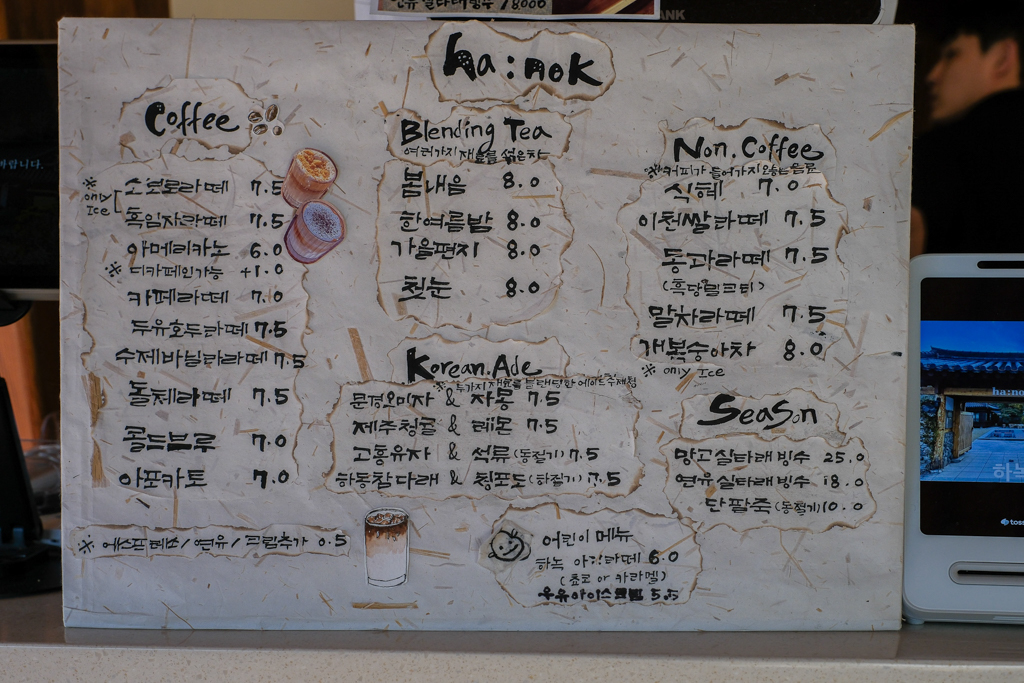 연유실타래빙수 /18000
BANK
ha:nok
Coffee
※ only Ice
소보로라떼 7.5
흑임자라떼 7.5
아메리카노 6.0
※ 디카페인가능 +1.0
카페라떼 7.0
두유호두라떼 7.5
수제바닐라라떼 7.5
돌체라떼 7.5
콜드브루 7.0
아포카토 7.0
※ 에스프레소/연유/크림추가 0.5
Blending Tea
여러가지 재료를 섞은차
봄내음 8.0
한여름밤 8.0
가을편지 8.0
첫눈 8.0
Korean.Ade
※ 두가지 재료를 블랜딩한 에이드 수제청
문경오미자 & 자몽 7.5
제주청귤 & 레몬 7.5
고흥유자 & 석류(동절기) 7.5
하동참다래 & 청포도(하절기) 7.5
Non.Coffee
※커피가 들어가지않는음료
식혜 7.0
이천쌀라떼 7.5
동과라떼 7.5
(흑당밀크티)
말차라떼 7.5
개복숭아차 8.0
※ only Ice
Season
망고실타래빙수 25.0
연유실타래빙수 18.0
단팥죽(동절기) 10.0
어린이 메뉴
하녹 아기라떼 6.0
(쵸코 or 카라멜)
우유아이스크림 5.5
바랍니다.
ha:no
하녹
toss